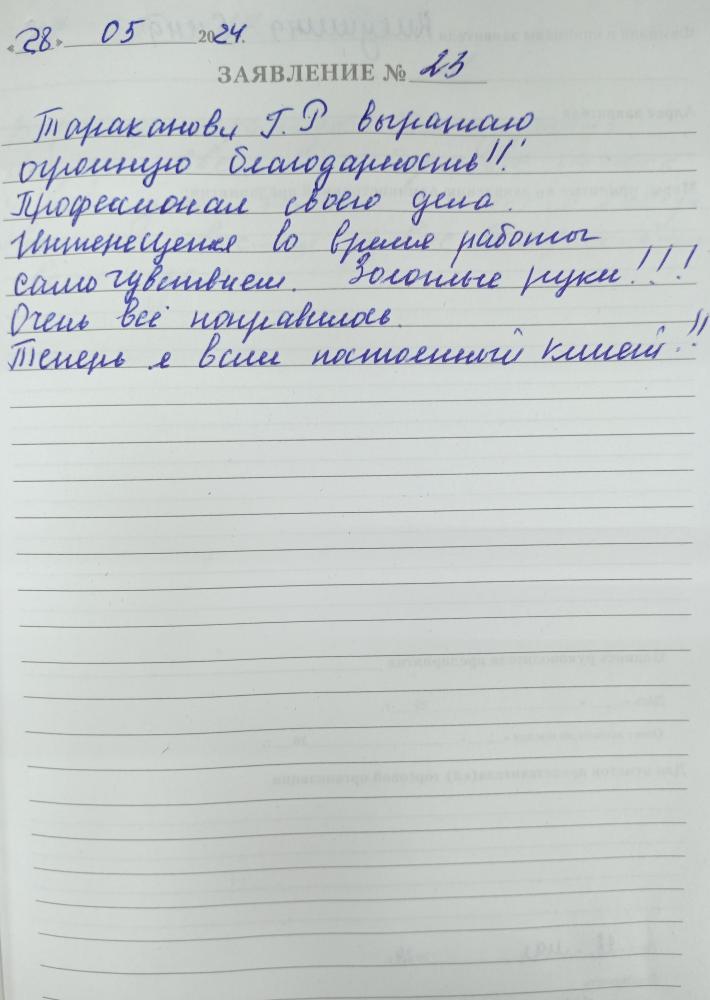 «28» 05 2024.
ЗАЯВЛЕНИЕ № 23
Таракановй Г.Р выражаю
огромную благодарность!!!
Профессионал своего дела.
Интенесцения во время работы
самочувствием. Золотые руки!!!
Очень всё понравилось.
Теперь я всем постоенный клиент!!